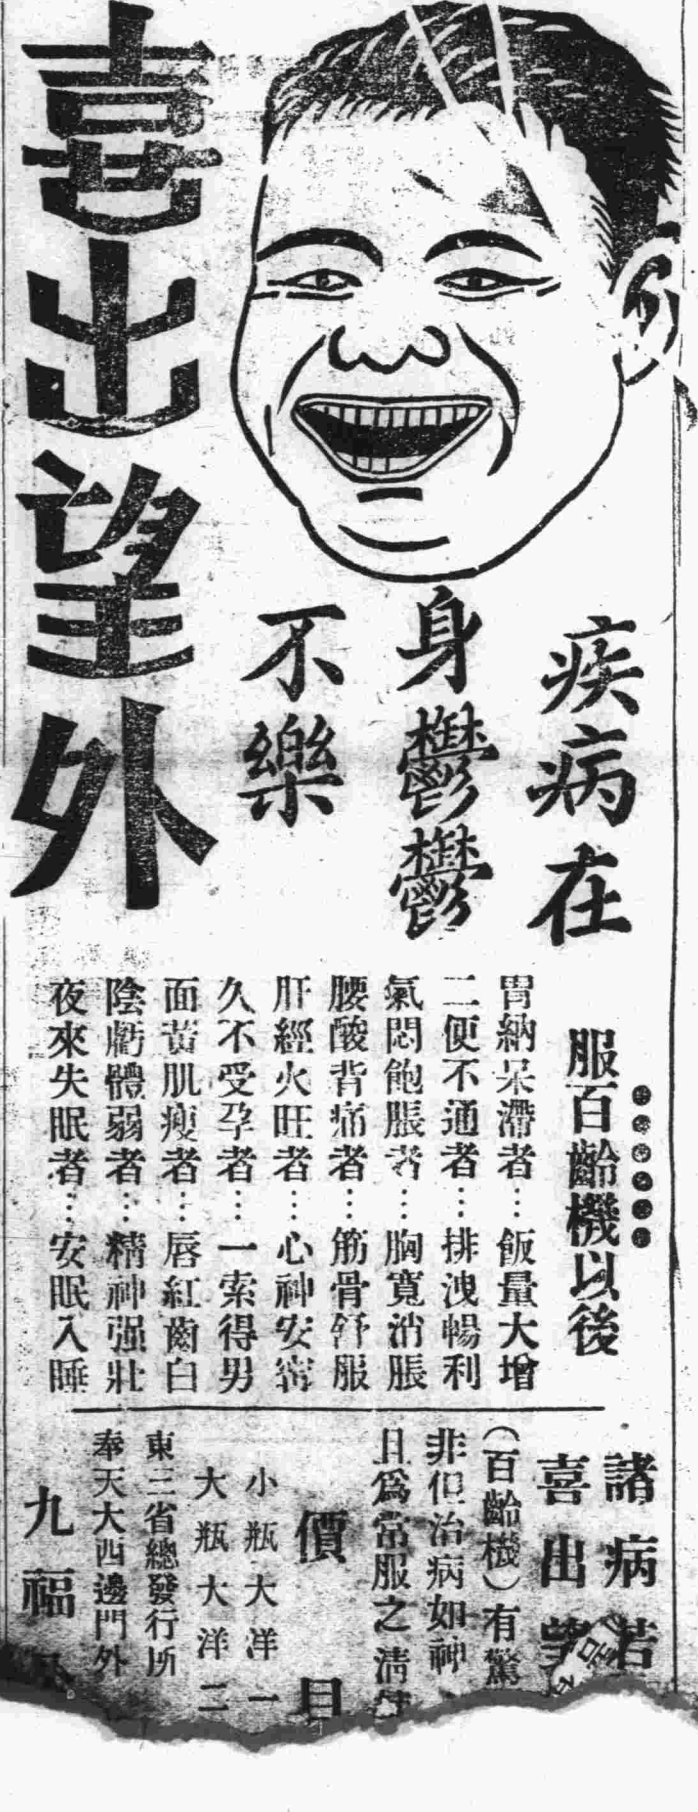 喜出望外
疾病在
身鬱鬱
不樂
服百齡機以後
胃納呆滯者…飯量大增
二便不通者…排洩暢利
氣悶飽脹者…胸寬消脹
腰酸背痛者…筋骨舒服
肝經火旺者…心神安寧
久不受孕者…一索得男
面黃肌瘦者…唇紅齒白
陰虧體弱者…精神强壯
夜來失眠者…安眠入睡
諸病若
喜出望
(百齡機)有驚
非但治病如神
且為常服之清
價目
小瓶大洋一
大瓶大洋二
東三省總發行所
奉天大西邊門外
九福